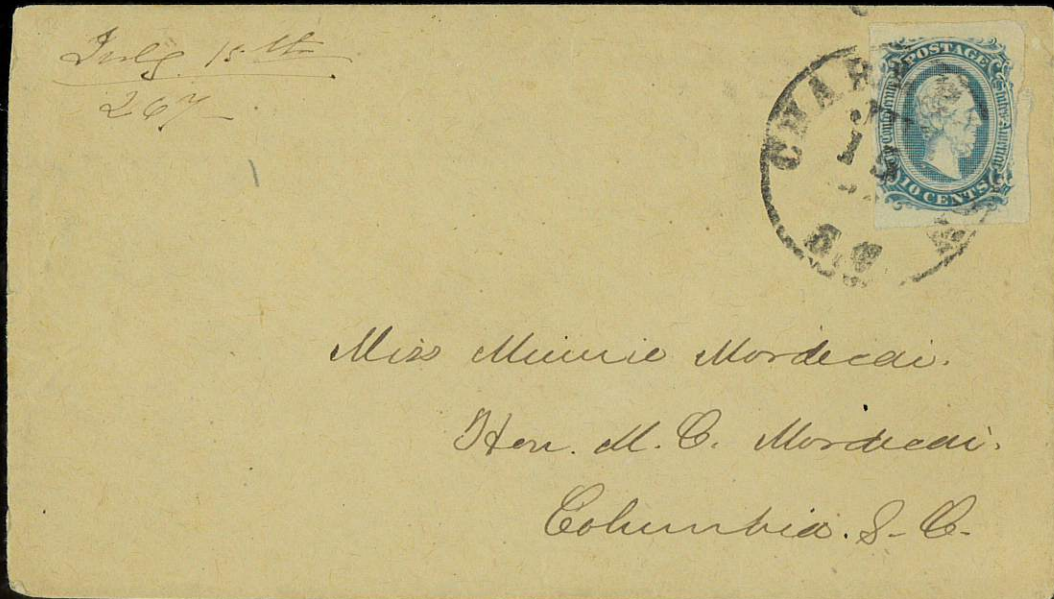 July 15th
267
CHAR
15
POSTAGE
10 CENTS
Miss Minnie Mordecai.
Hon. M. C. Mordecai.
Columbia. S-C-